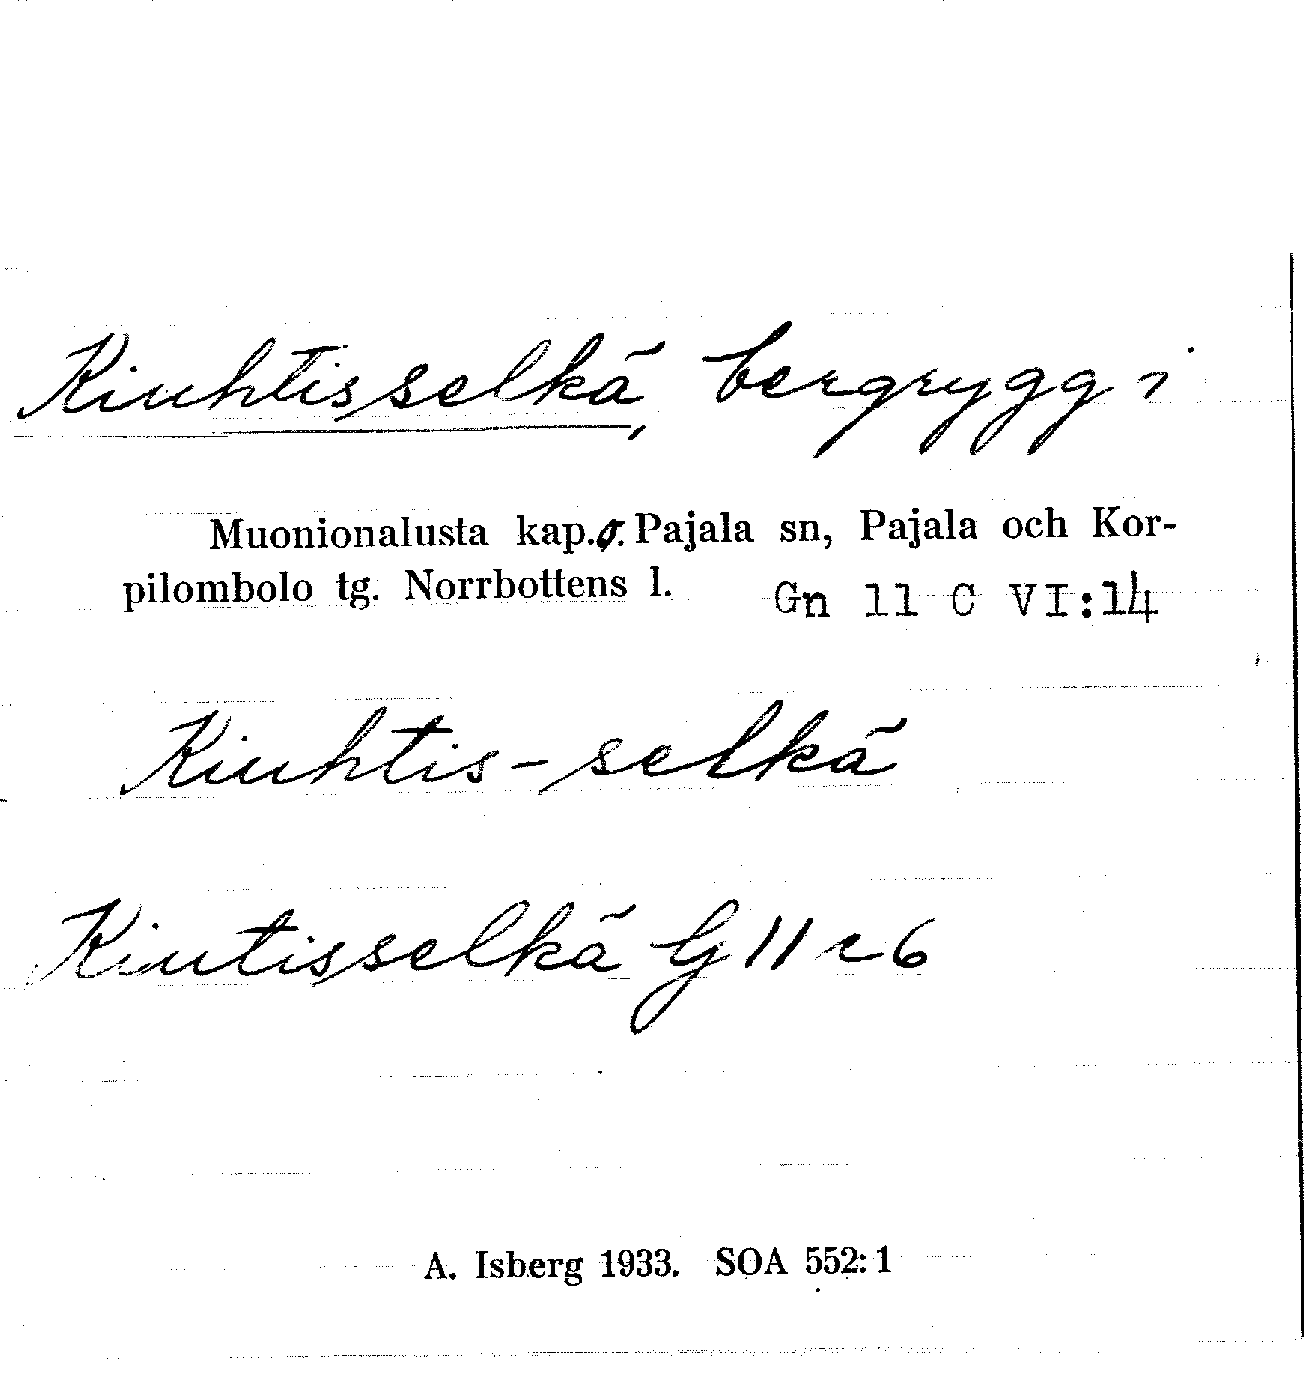 Kiuhtisselkä, bergrygg i
Muonionalusta kap. o. Pajala sn, Pajala och Kor-
pilombolo tg. Norrbottens l. Gn 11 C VI:14
Kiuhtis-selkä
Kiutisselkä G 11 c 6
A. Isberg 1933. SOA 552:1